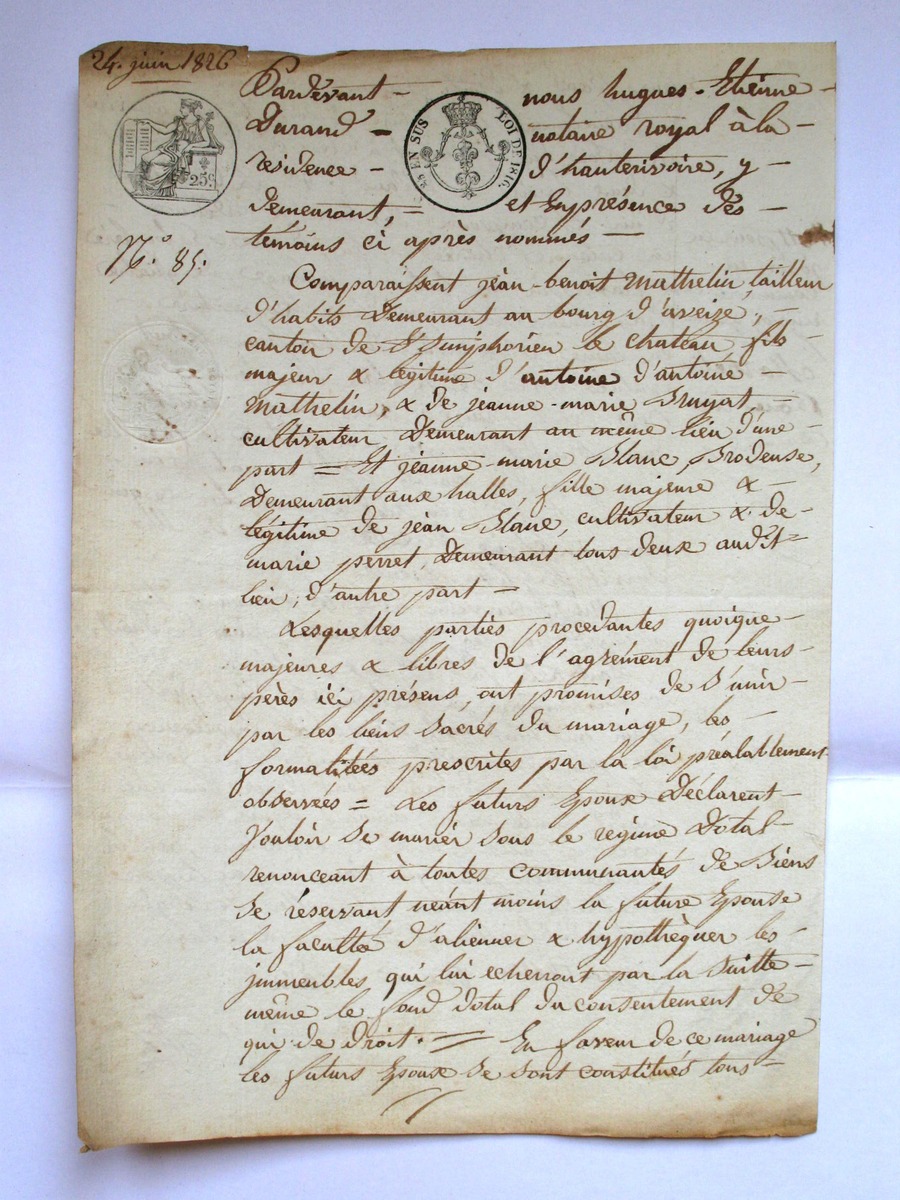 24. juin 1826
Pardevant - nous hugues-Etienne -
Durand - notaire royal à la -
residence - d'hauterivoire, y -
demeurant, = et En présence des -
témoins ci après nommés -
25 EN SUS LOI DE 1816.
25 c.
N.º 85.
Comparaissent jéan-benoit Mathelin, tailleur
d'habits Demeurant au bourg d'aveize, -
canton de St Simphorien le chateau, fils
majeur & légitime d'antoine d'antoine -
Mathelin, & de jéanne-marie Bruyat, -
cultivateur Demeurant au même lieu d'une
part = Et jéanne-marie Blanc, Brodeuse,
Demeurant aux halles, fille majeure & -
légitime de jéan Blanc, cultivateur & de -
marie perret, Demeurant tous deux audit =
lieu, d'autre part -
Lesquelles parties procédantes quoique -
majeures & libres de l'agrément de leurs -
pères ici présens, ont promises de s'unir -
par les liens sacrés du mariage, les -
formalitées prescrites par la loi préalablement
observées = Les futurs Epoux Déclarent -
Vouloir se marier sous le régime Dotal -
renonceant à toutes communautés de Biens
se réservant néant moins la future Epouse
la facultée d'alienner & hypothèquer les -
immeubles qui lui echerront par la suitte -
même le fond dotal du consentement de
qui de droit. = En faveur de ce mariage
les futurs Epoux se sont constitués tous -